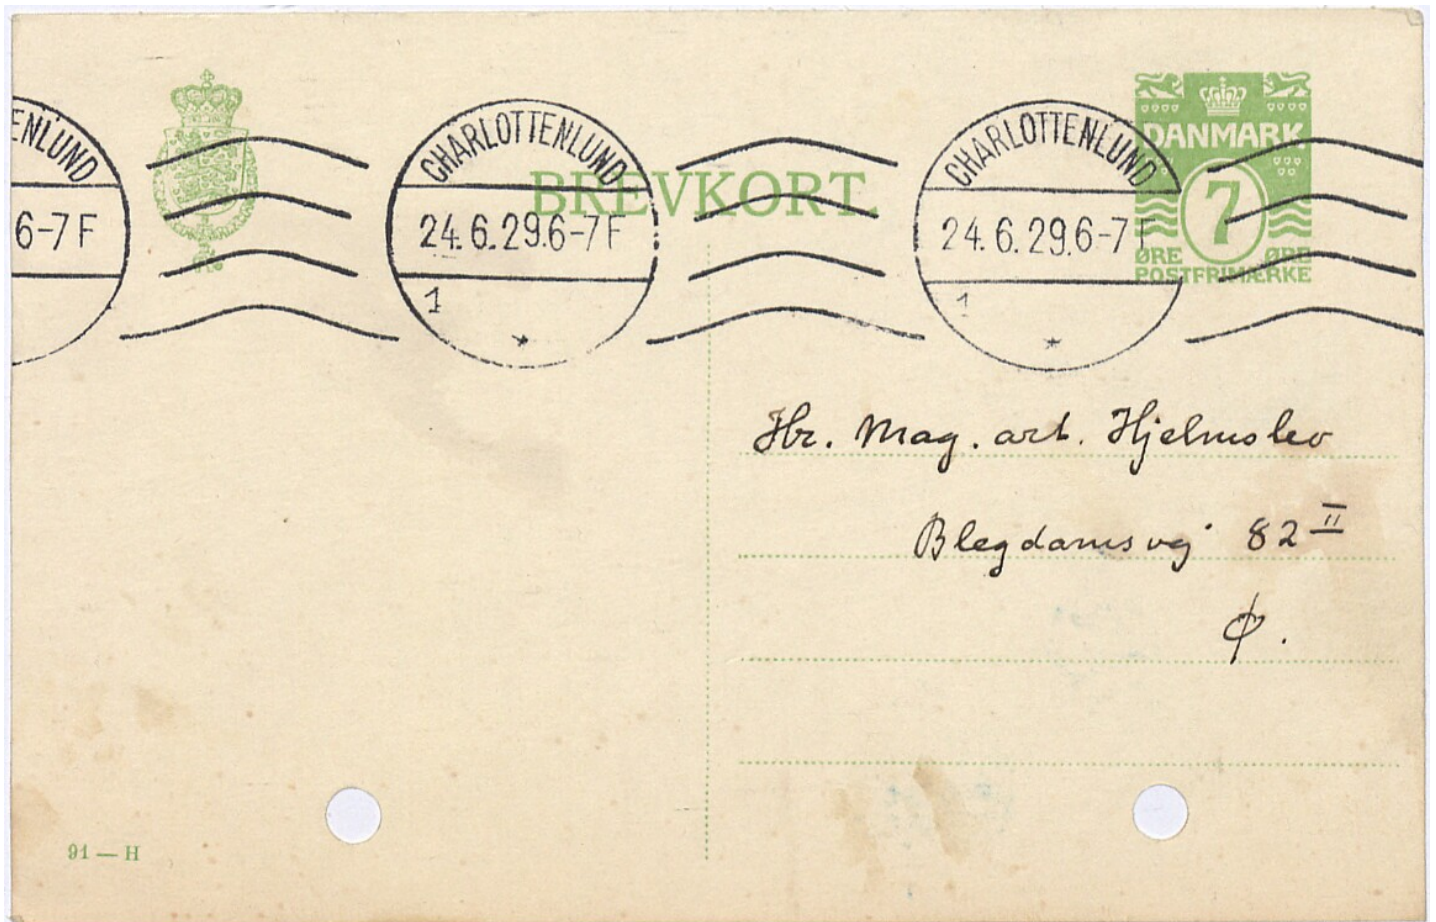 ENLUND
6-7 F
CHARLOTTENLUND
24.6.29.6-7 F
1
CHARLOTTENLUND
24.6.29.6-7 F
1
BREVKORT.
DANMARK
7
ØRE ØRE
POSTFRIMÆRKE
Hr. Mag. art. Hjelmslev
Blegdamsvej 82 II
Ø.
91 — H